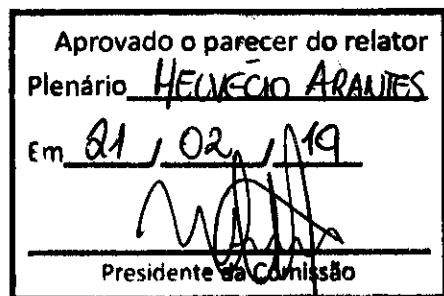 Aprovado o parecer do relator
Plenário HELVÉCIO ARANTES
Em 21 / 02 / 19
Presidente da Comissão